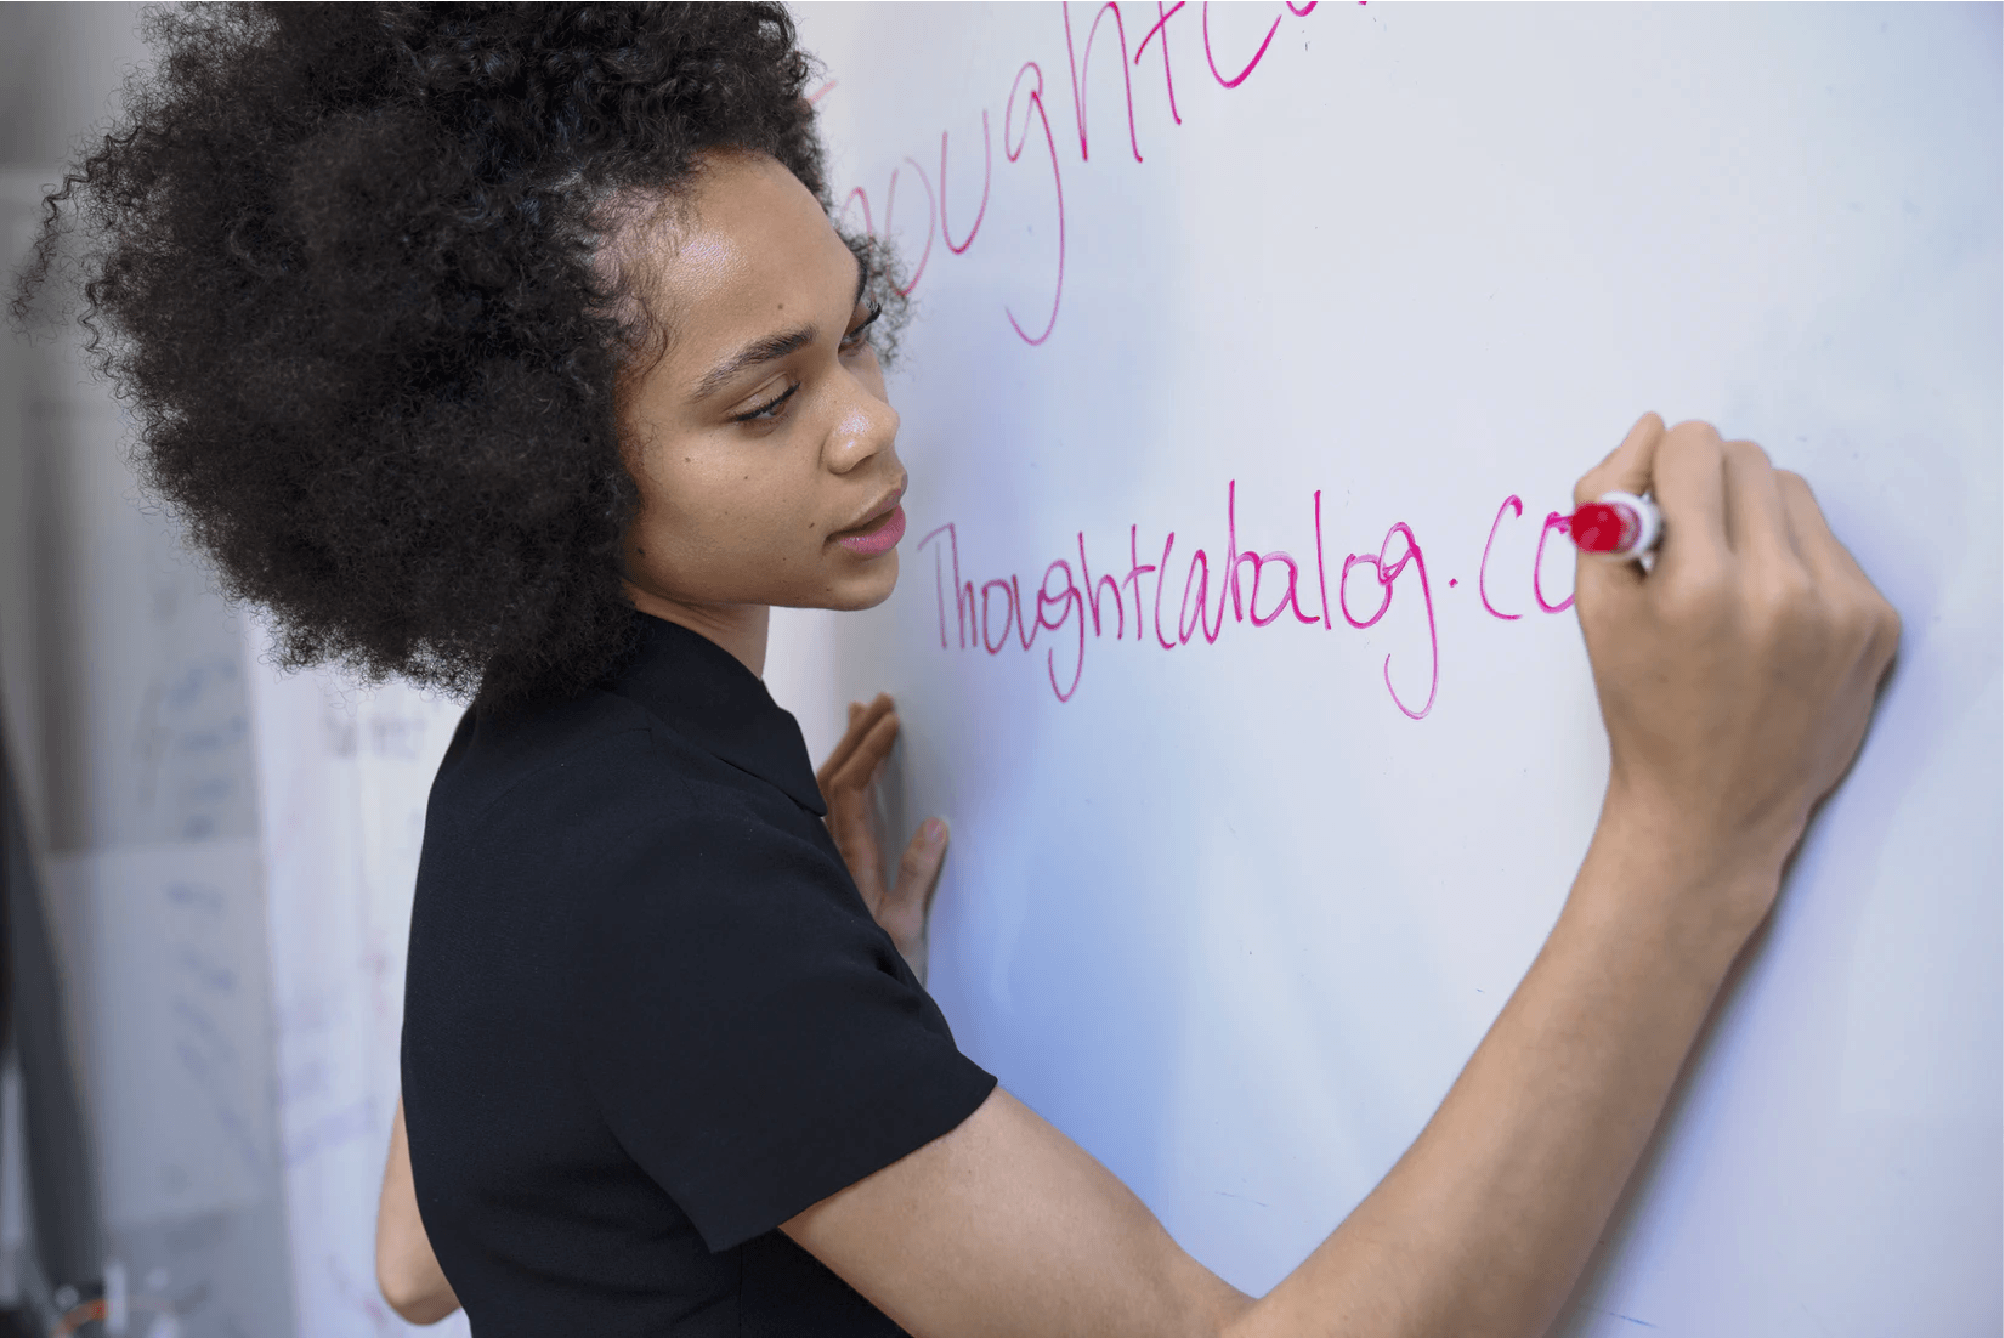 oughtca
Thoughtcatabalog.co